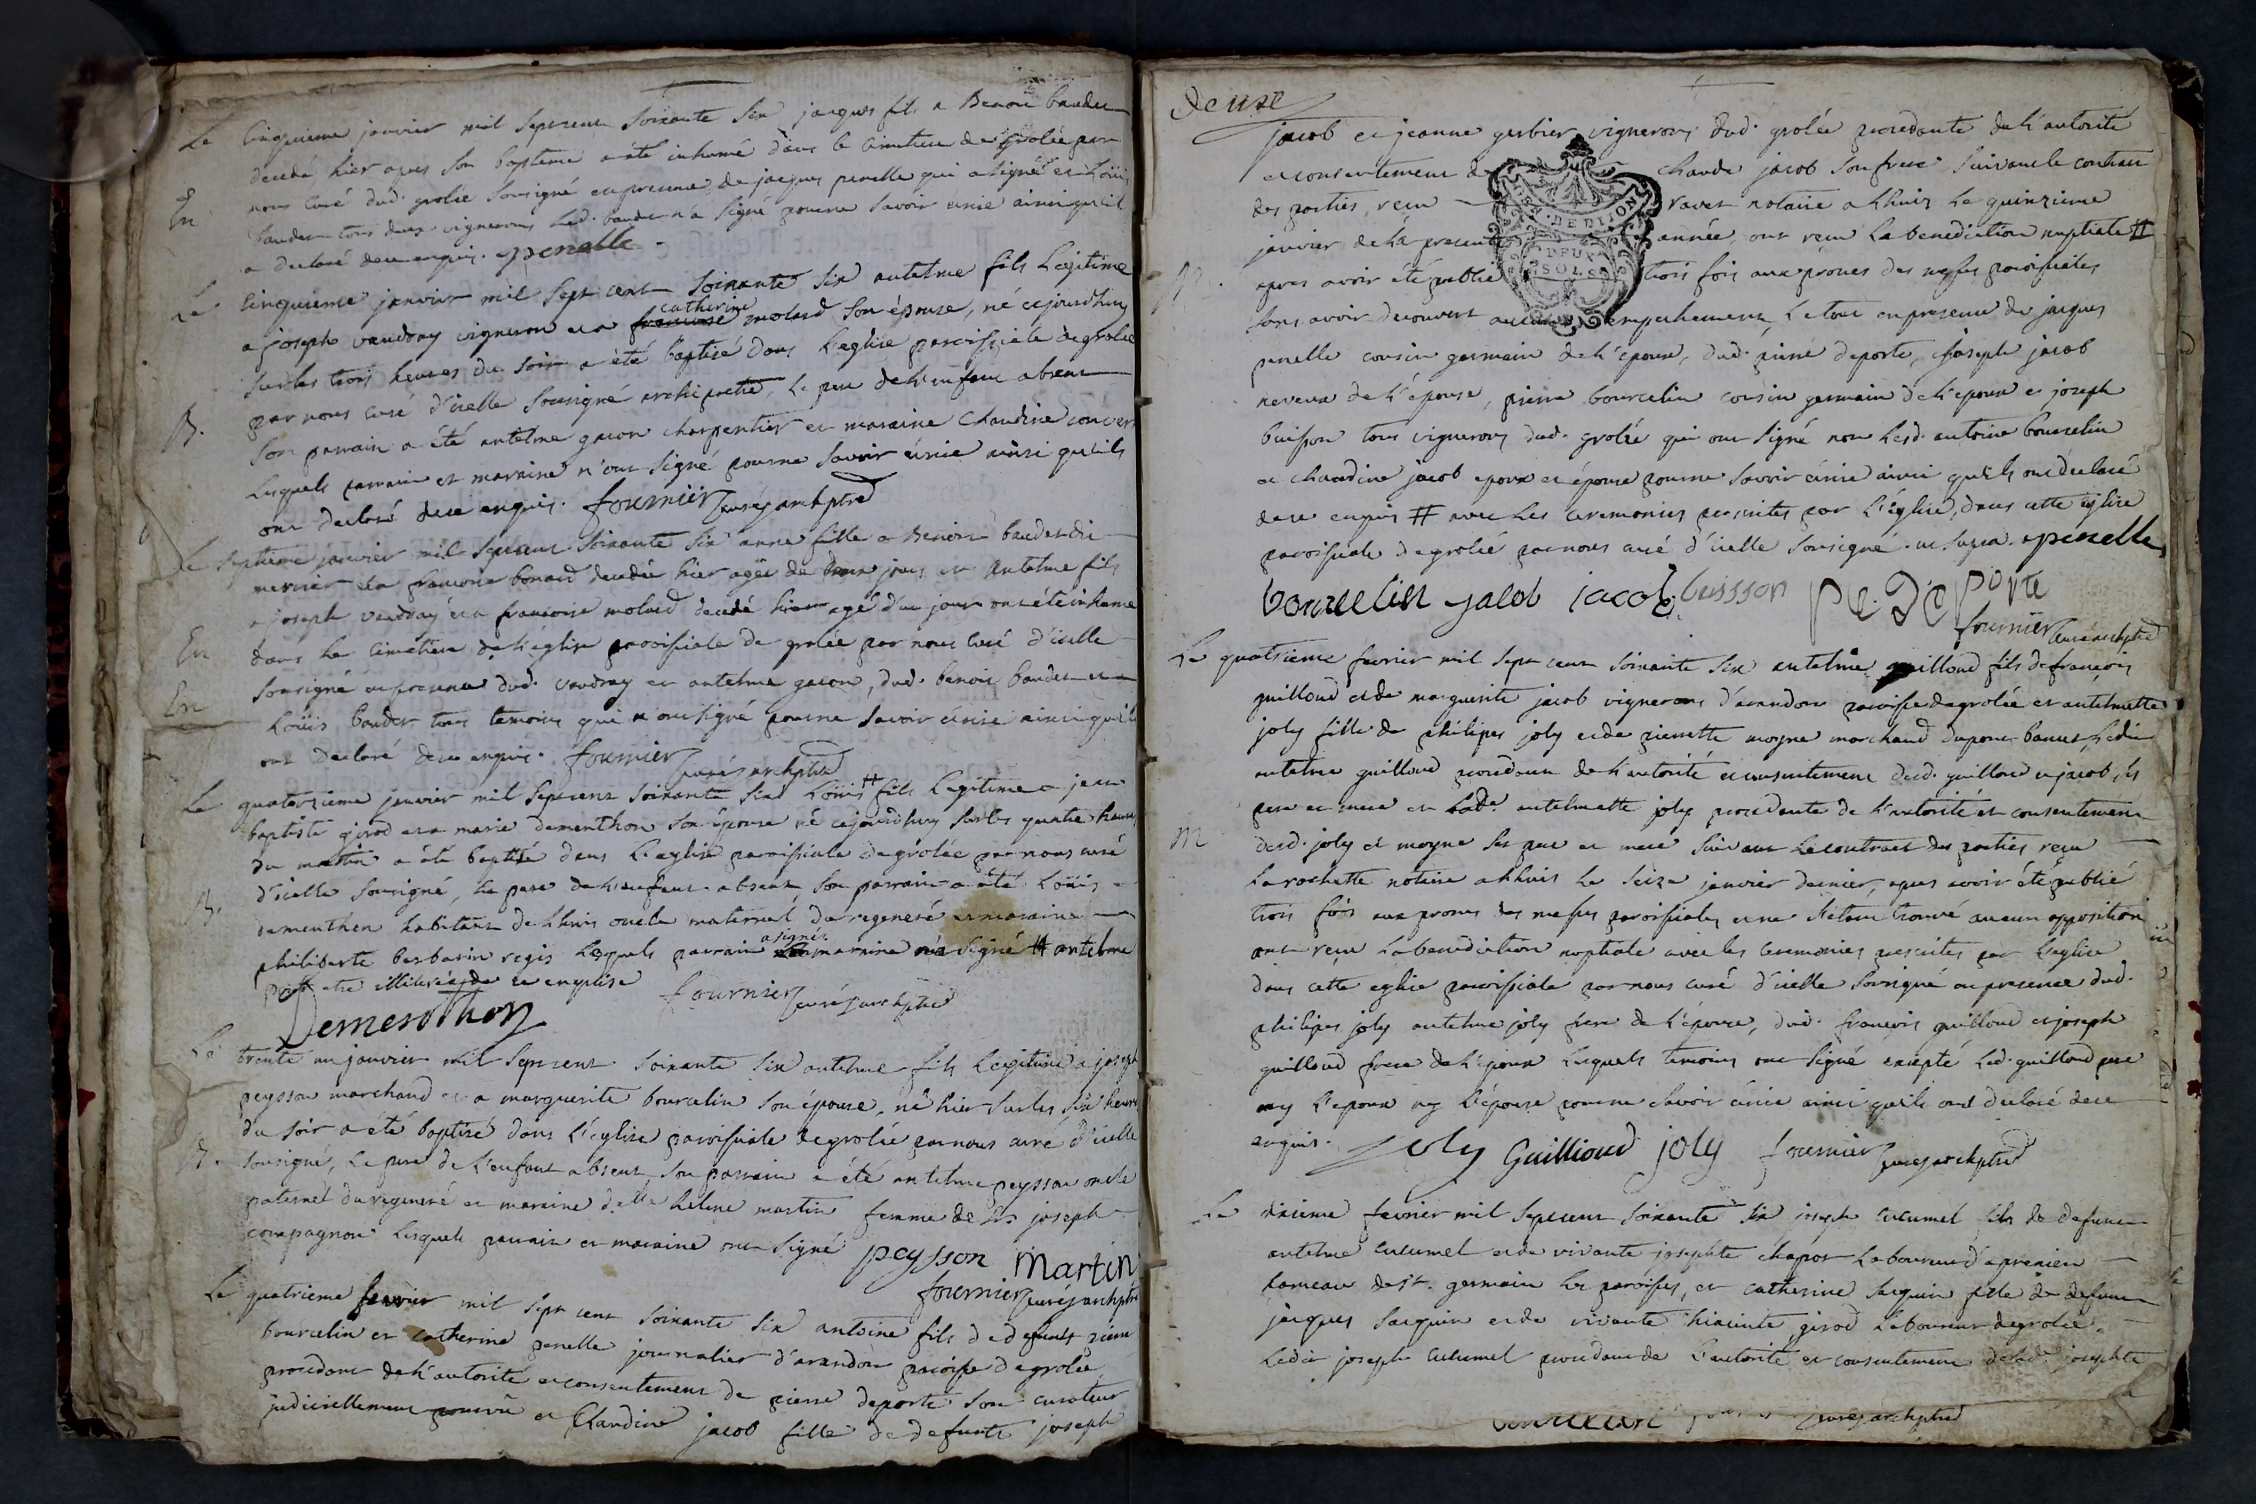 Le cinquieme janvier mil sept cent soixante six jacques fils a Benoit baudet
decedé hier apres son bapteme a été inhumé dans le cimetiere de grolée par
En nous curé dud. grolée soussigné en presence de jacques penelle qui a signé et Loüis
baudet tous deux vignerons led. baudet n'a signé pour ne savoir ecrire ainsi qu'il
a declaré de ce enquis. penelle
Le cinquieme janvier mil sept cent soixante six antelme fils Legitime
catherine
a joseph vaudray vigneron et a francoise molard son épouse, né cejourdhuy
sur les trois heures du soir a été baptisé dans L'eglise paroissiale de grolée
B. par nous curé d'icelle soussigné archipretre, le pere de l'enfant absent
son parrain a été antelme gacon charpentier et maraine Claudine
Lesquels parrain et marraine n'ont signé pour ne savoir écrire ainsi qu'ils
ont declaré de ce enquis. fournier curé, archiptre
Le septieme janvier mil sept cent soixante six anne fille a Benoit baudet dit
mercier et a francoise bonard decedée hier agée de jours et antelme fils
a joseph vaudray et a francoise molard decedé hier agé d'un jour ont été inhumé
En dans le cimetiere de l'église paroissiale de grolée par nous curé d'icelle
En soussigné en presence dud. vaudray et antelme gacon, dud. benoit baudet et
Loüis baudet tous temoins qui n'ont signé pour ne savoir écrire ainsi qu'ils
ont declaré de ce enquis. fournier curé, archiptre
Le quatorzieme janvier mil sept cent soixante six Loüis # fils Legitime a jean
baptiste girod et a marie dementhon son épouse né cejourdhuy sur les quatre heures
du matin a été baptisé dans L'eglise paroissiale de grolée par nous curé
B. d'icelle soussigné, le pere de l'enfant absent son parrain a été Loüis
dementhon habitant de Lhuis oncle maternel du regeneré et maraine
a signé
philiberte barbarin regis Lesquels parrain et maraine n'a signé # antelme
pour etre illiterée de ce enquise fournier curé, archiptre
Dementhon
Le trente un janvier mil sept cent soixante six antelme fils Legitime a joseph
peysson marchand et a marguerite bourcelin son épouse, né hier sur les six heures
du soir a été baptisé dans L'église paroissiale de grolée par nous curé d'icelle
B. soussigné, le pere de l'enfant absent, son parrain a été antelme peysson oncle
paternel du regeneré et maraine d.elle helene martin femme de Sr joseph
compagnon Lesquels parrain et maraine ont signé peysson Martin
fournier curé, archiptre
Le quatrieme fevrier mil sept cent soixante six antoine fils de defunts pierre
bourcelin et catherine penelle journalier d'arandon paroisse de grolée
procedant de l'autorité et consentement de pierre deporte son curateur
judiciellement pourvu et Claudine jacob fille de defunts joseph
Deuxe
jacob et jeanne gerbier vignerons dud. grolée procedante de l'autorité
et consentement de Claude jacob son frere suivant le contrat
des parties, reçu ravet notaire a Lhuis le quinzieme
janvier de la presente année, ont reçu la benediction nuptiale #
M. apres avoir été publié trois fois aux prones des messes paroissiales
GEN. DE DIJON
DEUX
SOLS
sans avoir decouvert aucun empechement, Le tout en presence de jacques
penelle cousin germain de l'epoux, dud. pierre deporte, joseph jacob
neveux de l'épouse, pierre bourcelin cousin germain de l'epoux et joseph
buisson tous vignerons dud. grolée qui ont signé non lesd. antoine bourcelin
et claudine jacob epoux et épouse pour ne savoir écrire ainsi qu'ils ont declaré
de ce enquis # avec les ceremonies prescrites par L'église, dans cette eglise
paroissiale de grolée par nous curé d'icelle soussigné. ut supra. penelle
bourcelin jacob jacob buissson PE. DE PORTE
fournier curé archiptre
Le quatrieme fevrier mil sept cent soixante six antelme guilloud fils de françois
guilloud et de marguerite jacob vignerons d'arandon paroisse de grolée et antelmette
joly fille de philipes joly et de pierrette moyne marchand dupont banset, Ledit
antelme guilloud procedant de l'autorité et consentement desd. guilloud et jacob, ses
pere et mere et lade. antelmette joly procedante de l'autorité et consentement
M desd. joly et moyne ses pere et mere suivant le contract des parties reçu
Larochette notaire a Lhuis le seize janvier dernier, apres avoir été publié
trois fois aux prones des messes paroissiales et ne s'etant trouvé aucun opposition
ont reçu la benediction nuptiale avec les ceremonies prescrites par L'eglise
dans cette eglise paroissiale par nous curé d'icelle soussigné en presence dud.
philipes joly antelme joly frere de l'épouse, dud. françois guilloud et joseph
guilloud frere de l'epoux Lesquels temoins ont signé excepté led. guilloud pere
ny l'epoux ny l'épouse pour ne savoir écrire ainsi qu'ils ont declaré de ce
enquis. Joly Guillioud joly fournier curé, archiptre
Le dixieme fevrier mil sept cent soixante six joseph cucumel fils de defunt
antelme cucumel et de vivante josephte chapot Laboureur d'aprenieu
hameau de st. germain les paroisses, et catherine sarquin fille de defunt
jacques sarquin et de vivante hiacinte girod laboureur de grolée.
Ledit joseph cucumel procedant de L'autorité et consentement de lade. josephte
curé, archiptre